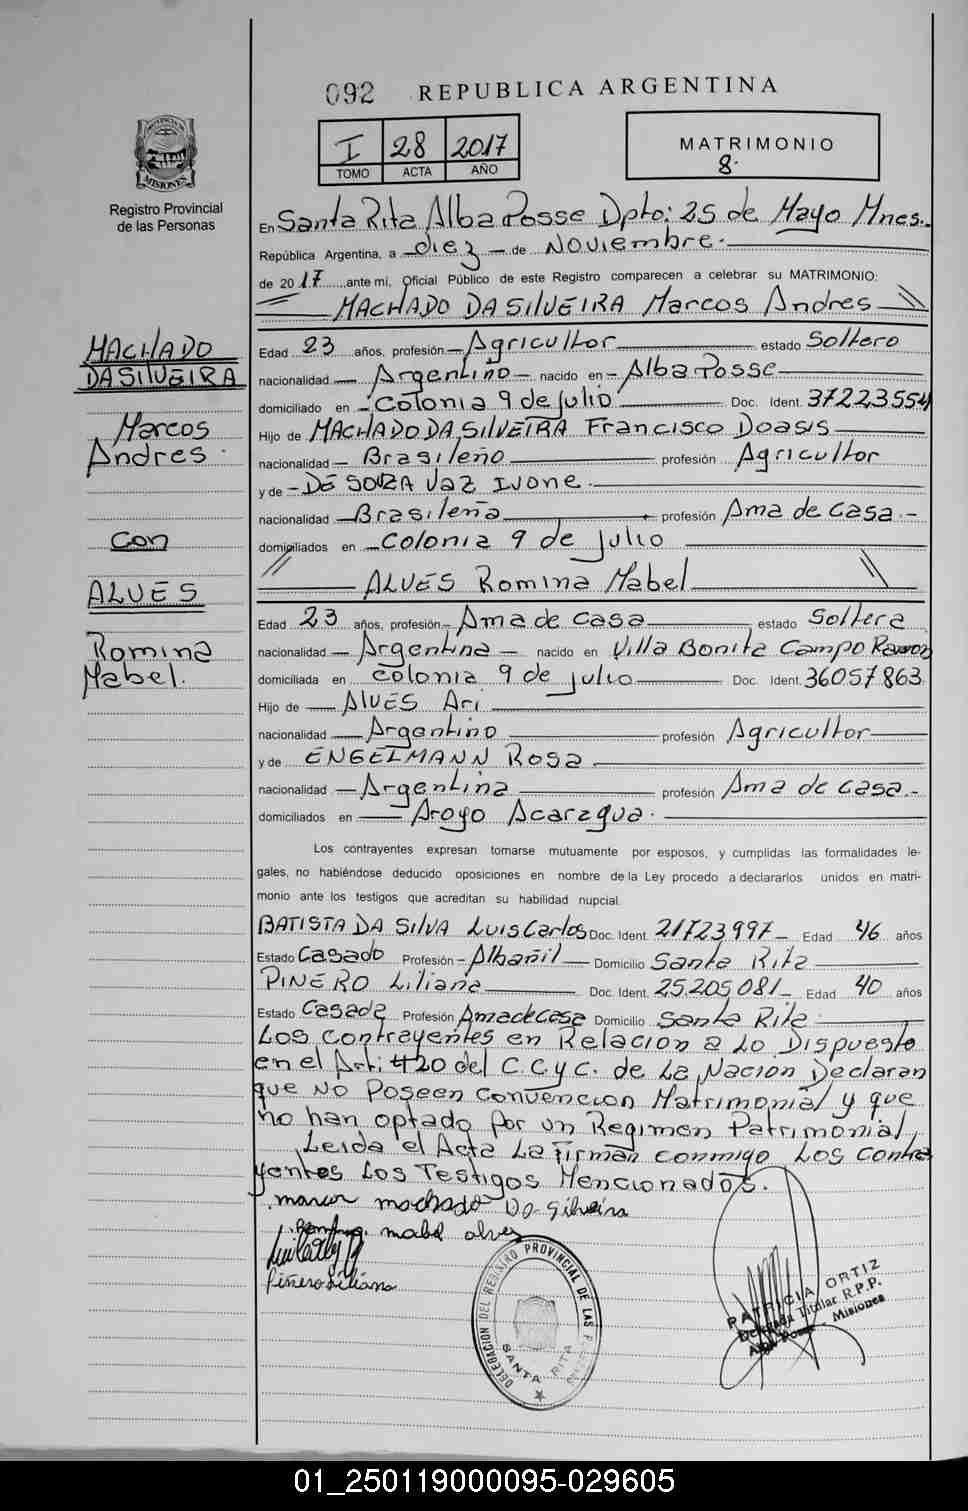 092 REPUBLICA ARGENTINA
I 28 2017
TOMO ACTA AÑO
MATRIMONIO
8.
PROVINCIA DE
MISIONES
Registro Provincial
de las Personas
En Santa Rita Alba Posse Dpto: 25 de Mayo Mnes.
República Argentina, a diez de Noviembre.
de 2017 ante mi, Oficial Público de este Registro comparecen a celebrar su MATRIMONIO:
MACHADO DA SILVEIRA Marcos Andres
Edad 23 años, profesión Agricultor estado Soltero
nacionalidad Argentino nacido en Alba Posse
domiciliado en Colonia 9 de julio Doc. Ident. 37223554
Hijo de MACHADO DA SILVEIRA Francisco Doasis
nacionalidad Brasileño profesión Agricultor
y de DE SOUZA Vaz Ivone.
nacionalidad Brasileña profesión Ama de casa.
domiciliados en Colonia 9 de julio
ALVES Romina Mabel
Edad 23 años, profesión Ama de casa estado Soltera
nacionalidad Argentina nacido en Villa Bonita Campo Ramon
domiciliada en colonia 9 de julio Doc. Ident. 36057863
Hijo de Alves Ari
nacionalidad Argentino profesión Agricultor
y de ENGELMANN Rosa
nacionalidad Argentina profesión Ama de casa.
domiciliados en Aroyo Acaragua.
MACHADO
DA SILVEIRA
Marcos
Andres.
con
ALVES
Romina
Mabel.
Los contrayentes expresan tomarse mutuamente por esposos, y cumplidas las formalidades le-
gales, no habiéndose deducido oposiciones en nombre de la Ley procedo a declararlos unidos en matri-
monio ante los testigos que acreditan su habilidad nupcial.
BATISTA DA SILVA Luis Carlos Doc. Ident. 21723997 Edad 46 años
Estado Casado Profesión Albañil Domicilio Santa Rita
PINERO Liliana Doc. Ident. 25.205.081 Edad 40 años
Estado Casada Profesión Ama de casa Domicilio Santa Rita
Los contrayentes en Relacion a Lo Dispuesto
en el Art: 420 del C.C.y C. de La Nacion Declaran
que No Poseen Convencion Matrimonial y que
no han optado por un Regimen Patrimonial,
Leida el Acta La Firman conmigo Los Contra
yentes Los Testigos Mencionados.
marcos machado Da Silveira
Romina mabel alves
Piñero Liliana
DELEGACION DEL REGISTRO PROVINCIAL DE LAS PERSONAS
SANTA RITA
PATRICIA ORTIZ
Delegada Titular R.P.P.
Alba Posse - Misiones
01_250119000095-029605